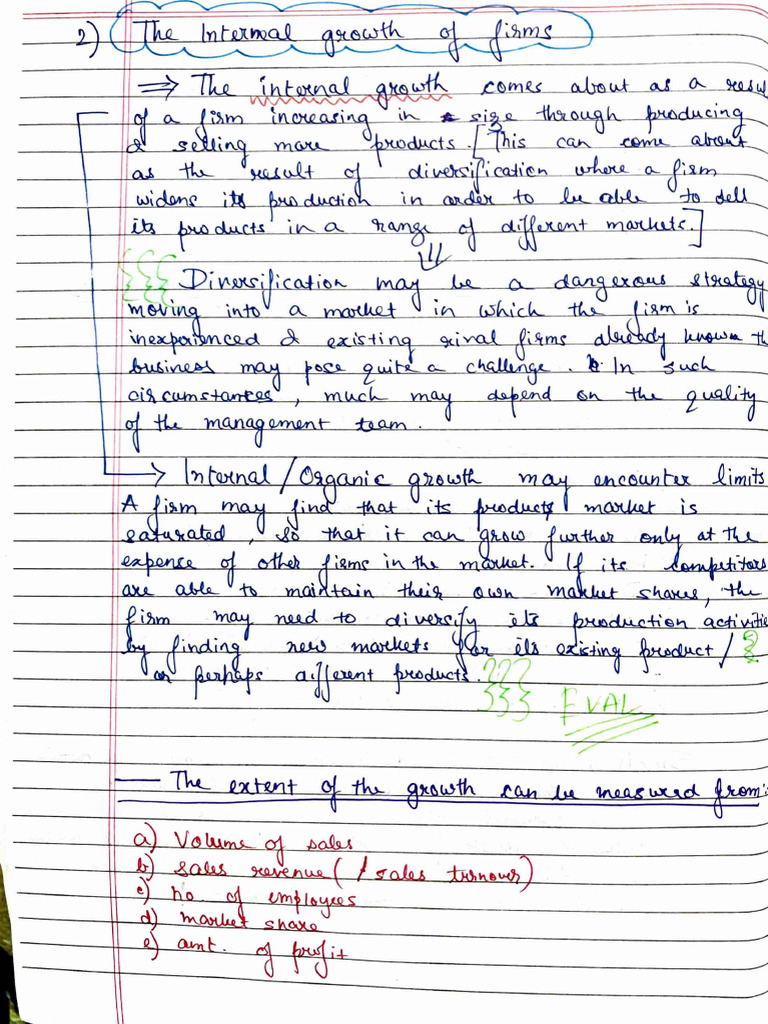 2) The Internal growth of firms
⇒ The internal growth comes about as a resu
of a firm increasing in size through producing
& selling more products. [This can come about
as the result of diversification where a firm
widens its production in order to be able to sell
its products in a range of different markets.]
Diversification may be a dangerous strategy
moving into a market in which the firm is
inexperienced & existing rival firms already known th
business may pose quite a challenge. In such
circumstances, much may depend on the quality
of the management team.
→ Internal/Organic growth may encounter limits
A firm may find that its product market is
saturated, so that it can grow further only at the
expense of other firms in the market. If its competitors
are able to maintain their own market shares, the
firm may need to diversify its production activitie
by finding new markets for its existing product/
or perhaps different products.
EVAL
— The extent of the growth can be measured from:
a) Volume of sales
b) sales revenue (/sales turnover)
c) no. of employees
d) market share
e) amt. of profit